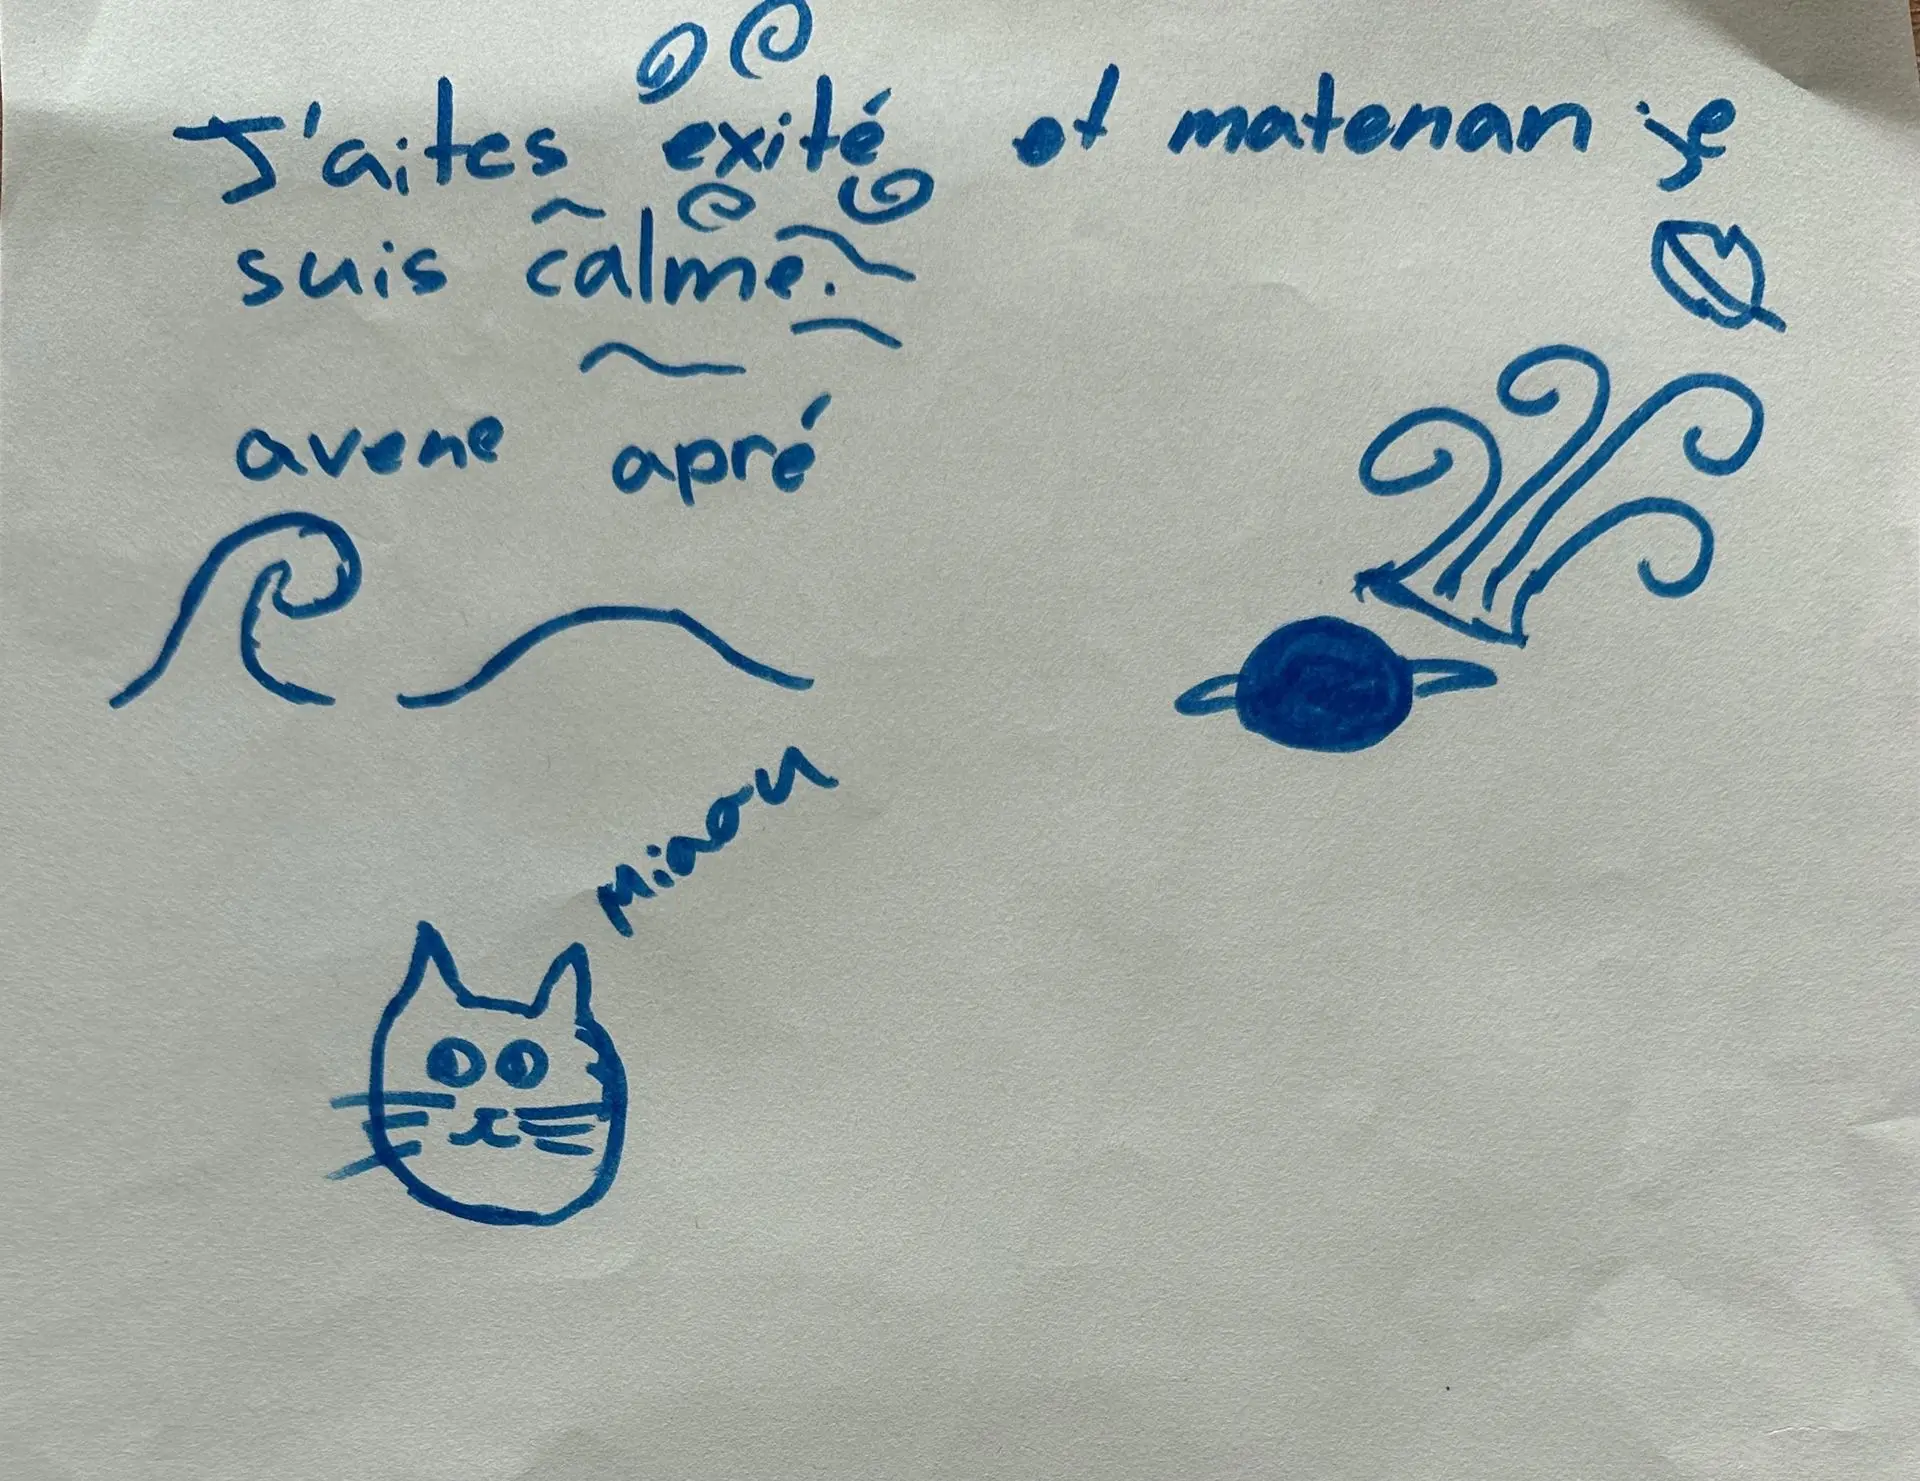 J'aites exité et matenan je
suis calme.
avene apré
Miaou